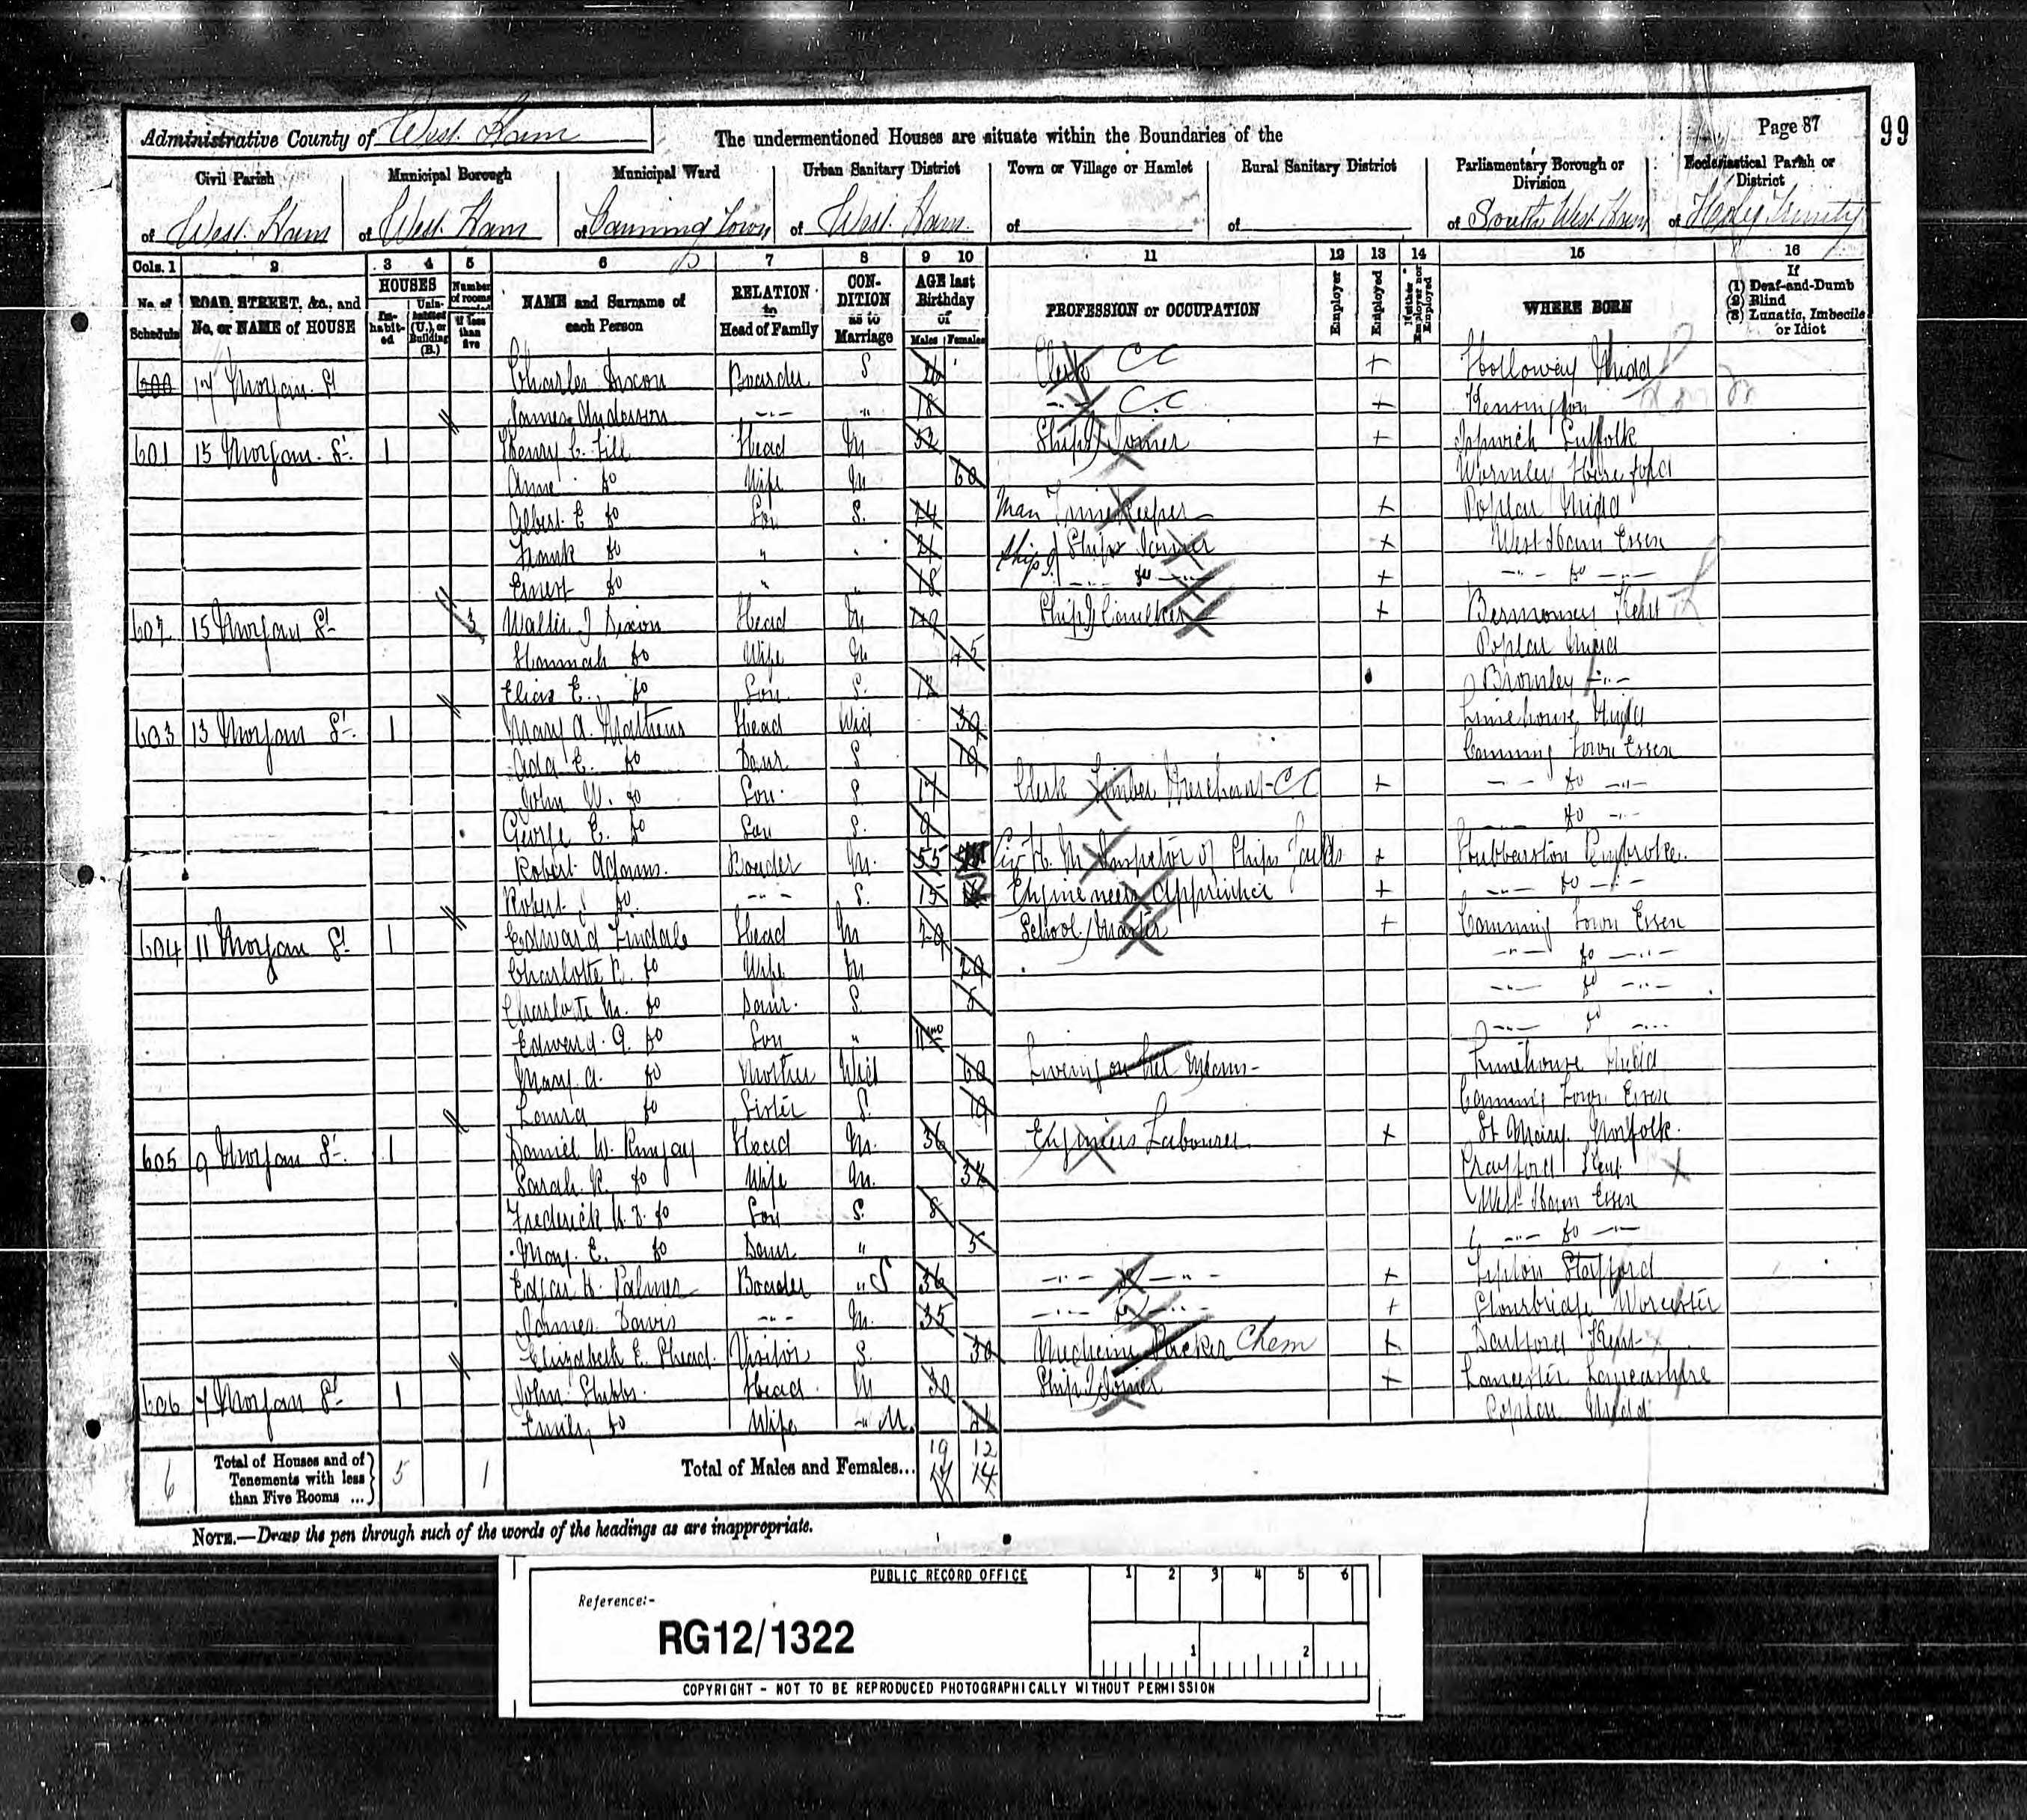 Administrative County of West Ham
The undermentioned Houses are situate within the Boundaries of the
Page 87
99
Civil Parish
Municipal Borough
Municipal Ward
Urban Sanitary District
Town or Village or Hamlet
Rural Sanitary District
Parliamentary Borough or Division
Ecclesiastical Parish or District
of West Ham
of West Ham
of Canning Town
of West Ham
of
of
of South West Ham
of Holy Trinity
Cols. 1 2 3 4 5 6 7 8 9 10 11 12 13 14 15 16
No. of Schedule
ROAD, STREET, &c., and No. or NAME of HOUSE
HOUSES
In-habit-ed
Unin-habited (U.), or Building (B.)
Number of rooms if less than five
NAME and Surname of each Person
RELATION to Head of Family
CON-DITION as to Marriage
AGE last Birthday of
Males Females
PROFESSION or OCCUPATION
Employer
Employed
If neither Employer nor Employed
WHERE BORN
If
(1) Deaf-and-Dumb
(2) Blind
(3) Lunatic, Imbecile or Idiot
600 17 Morgan St Charles Boarder S Clerk CC + Holloway Midd
James Anderson -"- " 18 -"- C.C + Kensington
601 15 Morgan St. 1 Henry C. Head M 52 Ship Joiner + Ipswich Suffolk
Anne do Wife M 60 Wormley
Albert E do Son S. 24 Timekeeper + Poplar Midd
Frank do " " 21 Ships Joiner + West Ham Essex
Ernest do " " 18 -"- do -"- + -"- do -"-
602 15 Morgan St 3 Walter J Dixon Head M 49 Ship Caulker + Kent
Hannah do Wife M 45 Poplar Midd
Elias E. do Son S. 12 Bromley -"-
603 13 Morgan St. 1 Mary A. Mathews Head Wid 39 Limehouse Midd
Ada E. do Daur S 19 Canning Town Essex
John W. do Son S 17 Clerk Timber Merchant CC + -"- do -"-
George E. do Son S. 9 -"- do -"-
Robert Adams Boarder M. 55 Inspector of Ships + Hubberston Pembroke
Robert J do -"- S. 15 Engineers Apprentice + -"- do -"-
604 11 Morgan St 1 Edward Tindale Head M 29 School Master + Canning Town Essex
Charlotte R. do Wife M 29 -"- do -"-
Charlotte M. do Daur. S. 5 -"- do -"-
Edward G. do Son " 11 mo -"- do -"-
Mary A. do Mother Wid 60 Living on her Means Limehouse Midd
Laura do Sister S. 19 Canning Town Essex
605 9 Morgan St. 1 Daniel W. Head M. 36 Engineers Labourer + St Mary Norfolk
Sarah R. do Wife M. 34 Crayford Kent
Frederick do Son S. 8 West Ham Essex
May E. do Daur " 5 -"- do -"-
Edgar H. Palmer Boarder " S 36 -"- do -"- + Tipton Stafford
James Davis -"- M. 35 -"- do -"- + Stourbridge Worcester
Elizabeth E. Visitor S. 30 Medicine Packer Chem + Dartford Kent
606 7 Morgan St 1 John Stubbs Head M 30 Ship Joiner + Lancaster Lancashire
Emily do Wife -"- M. Poplar Midd
6
Total of Houses and of Tenements with less than Five Rooms ...
5 1
Total of Males and Females...
19 12
17 14
NOTE.—Draw the pen through such of the words of the headings as are inappropriate.
PUBLIC RECORD OFFICE
Reference:-
RG12/1322
1 2 3 4 5 6
1 2
COPYRIGHT - NOT TO BE REPRODUCED PHOTOGRAPHICALLY WITHOUT PERMISSION